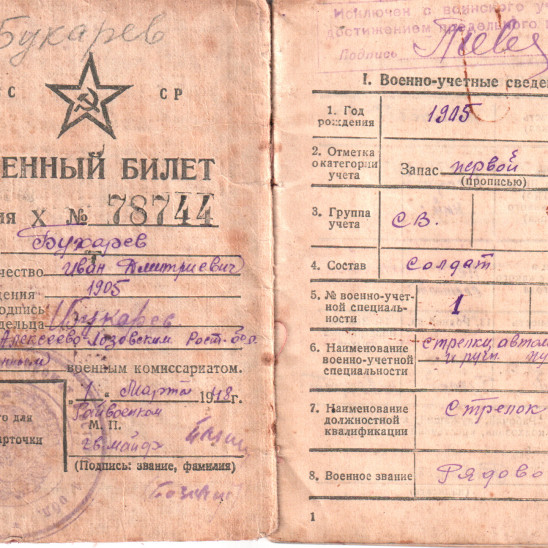 Букарев
С СР
ЕННЫЙ БИЛЕТ
ия X № 78744
Букарев
чество Иван Дмитриевич
дения 1905
одпись
дельца Букарев
Алексеево-Лозовским Рост. обл.
военным комиссариатом.
„1" Марта 1948г.
Райвоенком
М. П.
го для
арточки
гв. майор
(Подпись: звание, фамилия)
Исключен с воинского уч
достижением предельного
Подпись
I. Военно-учетные сведе
1. Год
рождения
1905
2. Отметка
о категории
учета
Запас первой
(прописью)
3. Группа
учета
СВ.
4. Состав
солдат
5. № военно-учет-
ной специаль-
ности
1
6. Наименование
военно-учетной
специальности
стрелки, автом
и руч. пу
7. Наименование
должностной
квалификации
Стрелок
8. Военное звание
Рядово
1